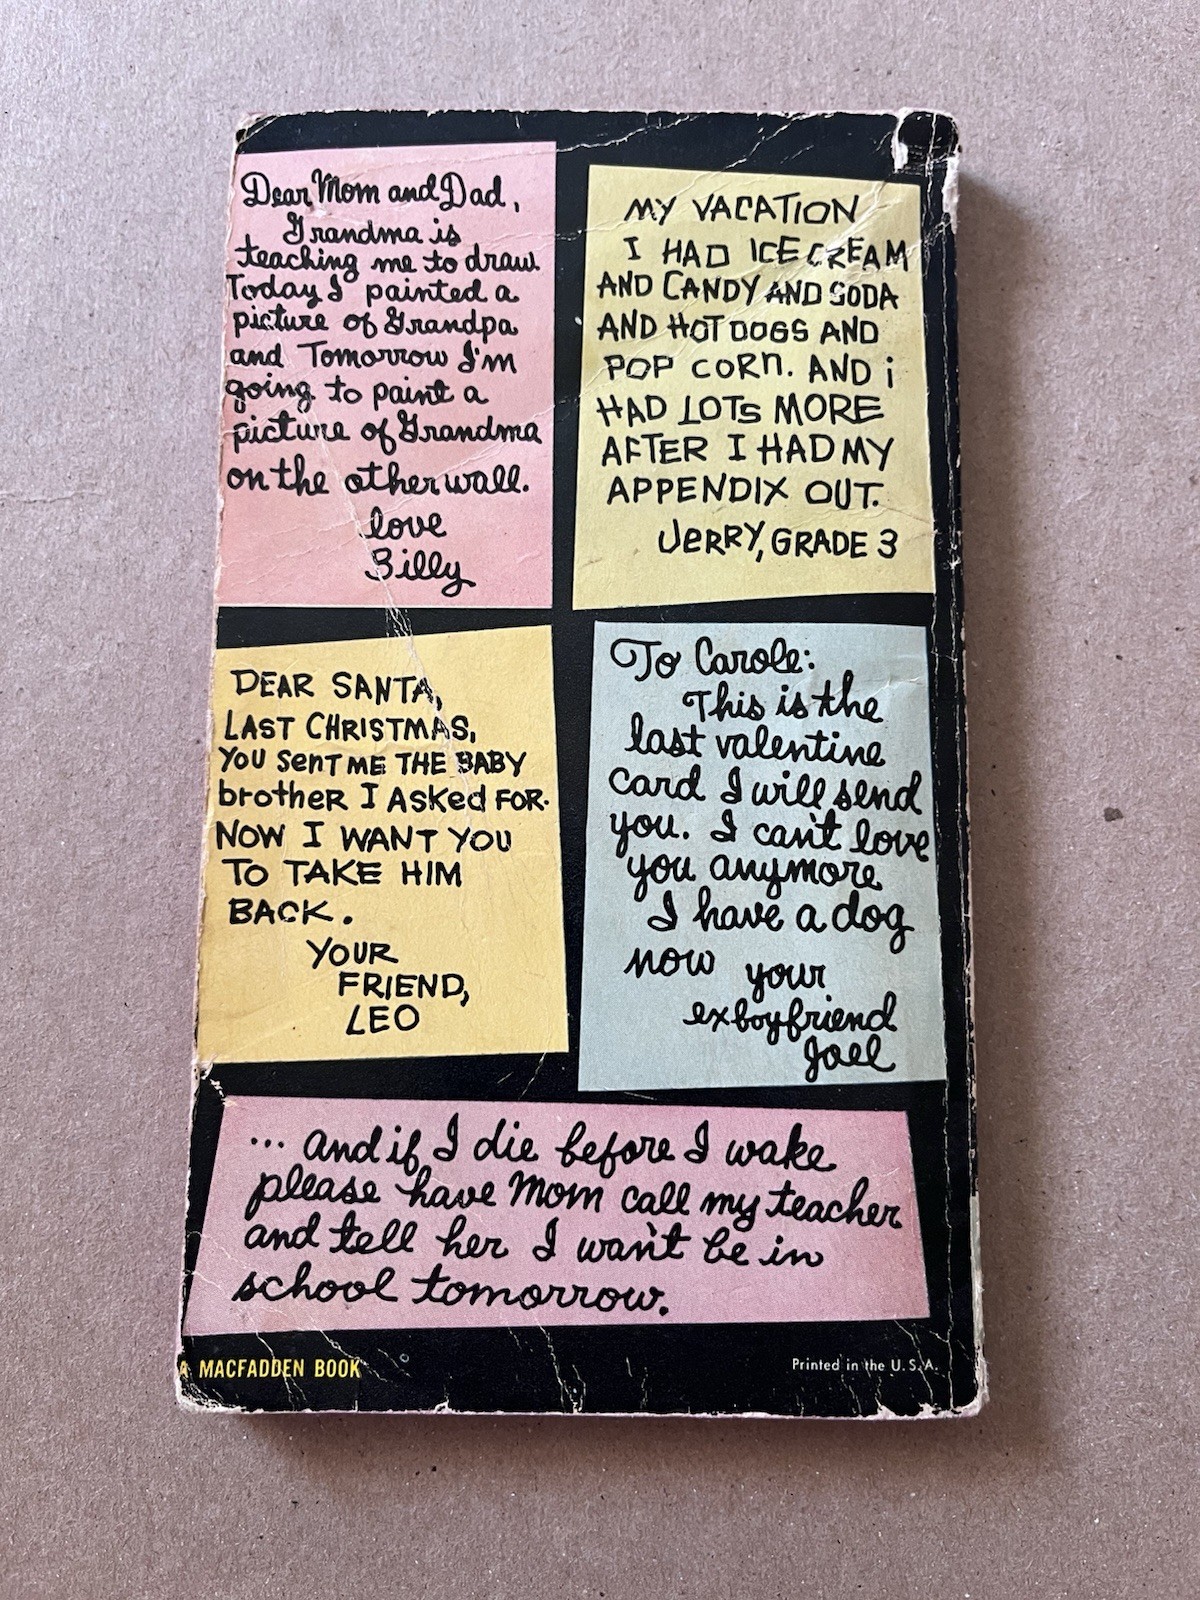 Dear Mom and Dad,
Grandma is
teaching me to draw.
Today I painted a
picture of Grandpa
and Tomorrow I'm
going to paint a
picture of Grandma
on the other wall.
love
Billy
MY VACATION
I HAD ICE CREAM
AND CANDY AND SODA
AND HOT DOGS AND
POP CORn. AND i
HAD LOTS MORE
AFTER I HAD MY
APPENDIX OUT.
JERRY, GRADE 3
DEAR SANTA,
LAST CHRISTMAS,
YOU SenT ME THE BABY
brotheR I ASKed FOR.
NOW I WANT YOU
TO TAKE HIM
BACK.
YOUR
FRIEND,
LEO
To Carole:
This is the
last valentine
card I will send
you. I can't love
you anymore
I have a dog
now your
exboyfriend
Joel
... and if I die before I wake
please have Mom call my teacher
and tell her I wan't be in
school tomorrow.
A MACFADDEN BOOK
Printed in the U.S.A.